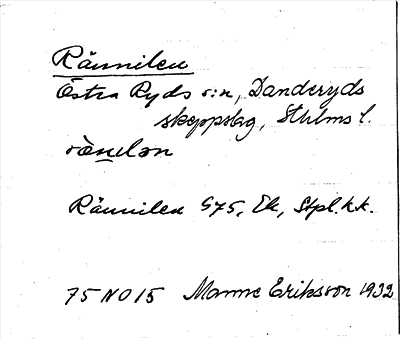 Rännilen
Östra Ryds s:n, Danderyds
skeppslag, Sthlms l.
rännilən
Rännilen G75, Ek, Stpl.k.k.
75 NO 15 Manne Eriksson 1932